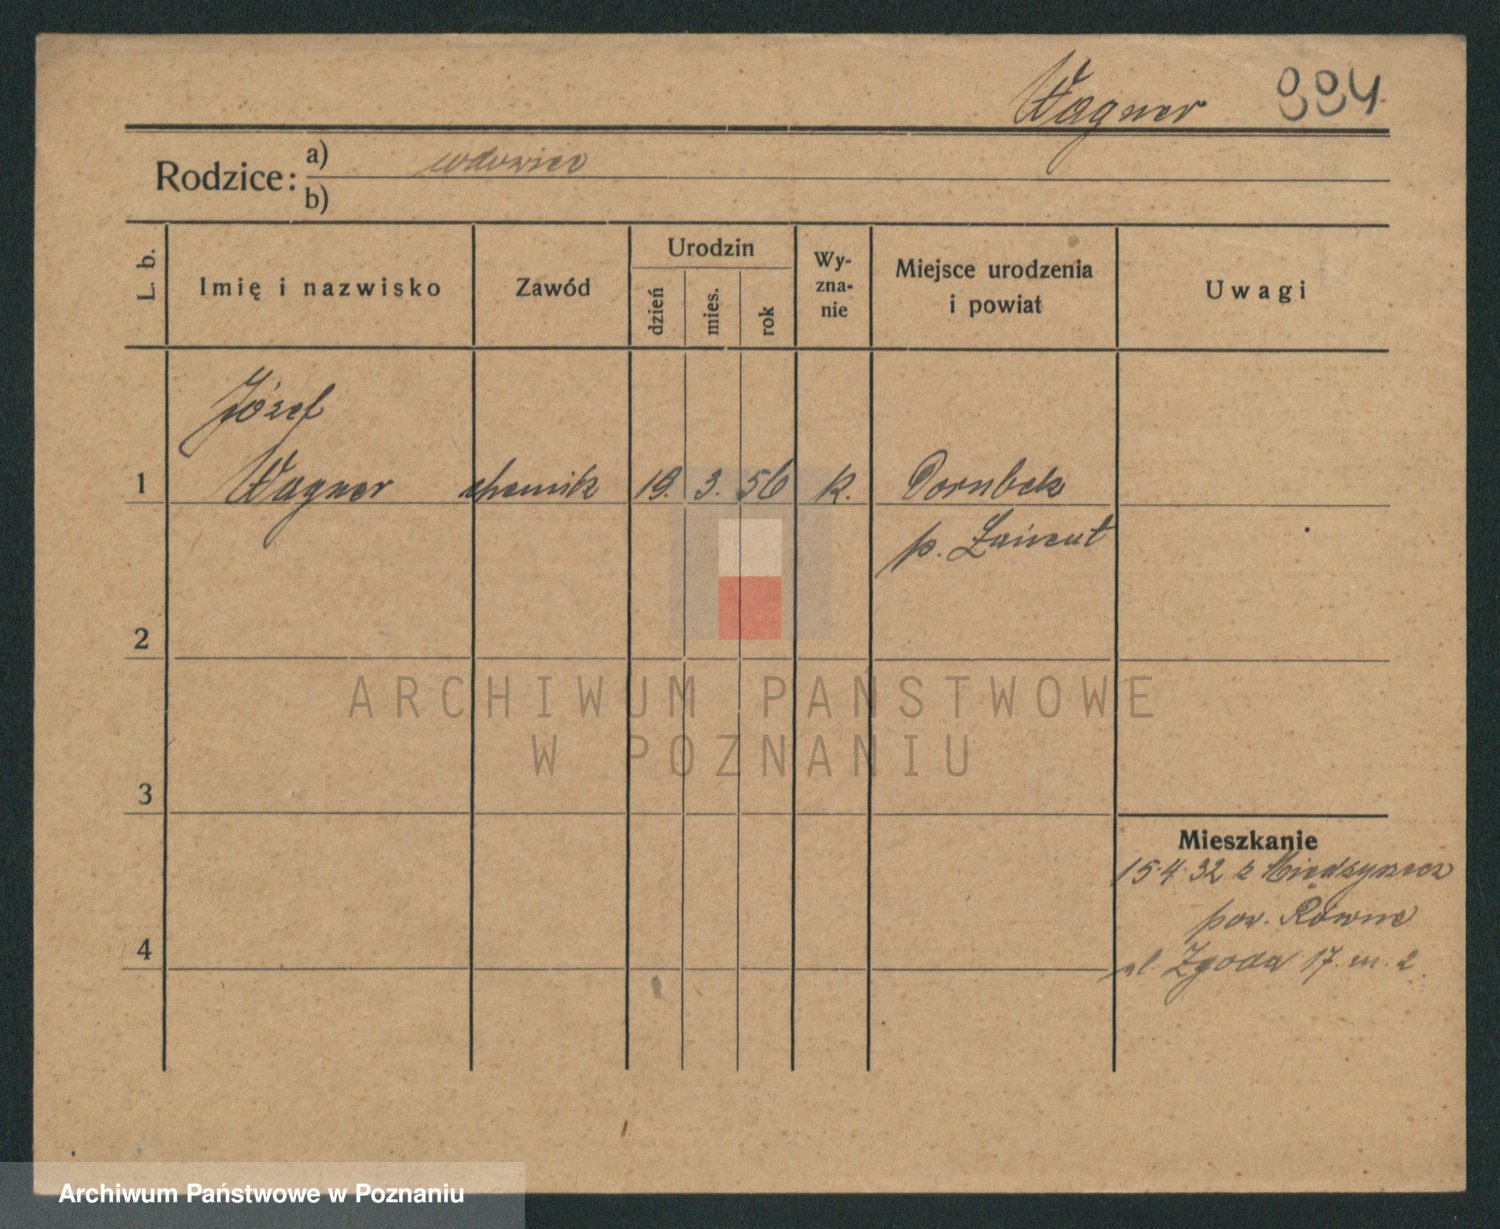 Wagner 994
Rodzice: a) wdowiec
b)
L. b.
Imię i nazwisko
Zawód
Urodzin
dzień
mies.
rok
Wy-
zna-
nie
Miejsce urodzenia
i powiat
Uwagi
Józef
1 Wagner chemik 19. 3. 56 k. Dornbek
p. Łańcut
2
ARCHIWUM PAŃSTWOWE
W POZNANIU
3
Mieszkanie
15.4.32 z Międzyrzecz
pow. Równe
4 ul. Zgoda 17. m. 2.
Archiwum Państwowe w Poznaniu